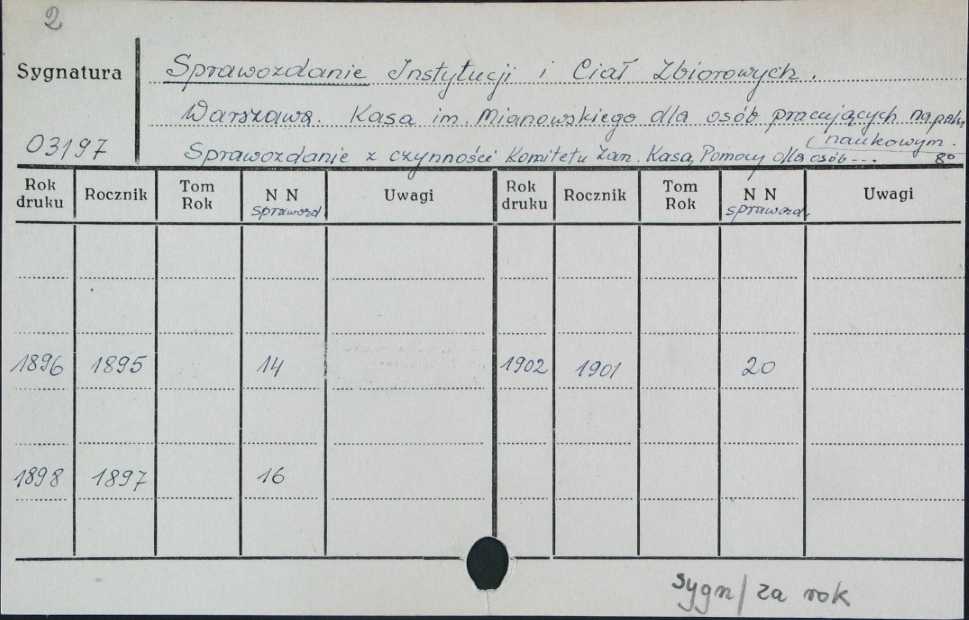 2
Sygnatura
03197
Sprawozdanie Instytucji i Ciał Zbiorowych.
Warszawa. Kasa im. Mianowskiego dla osób pracujących na polu
naukowym.
Sprawozdanie z czynności Komitetu Zarz. Kasą Pomocy dla osób... 8º
Rok druku Rocznik Tom Rok N N sprawozd. Uwagi Rok druku Rocznik Tom Rok N N sprawozd. Uwagi
1896 1895 14 1902 1901 20
1898 1897 16
sygn/za rok